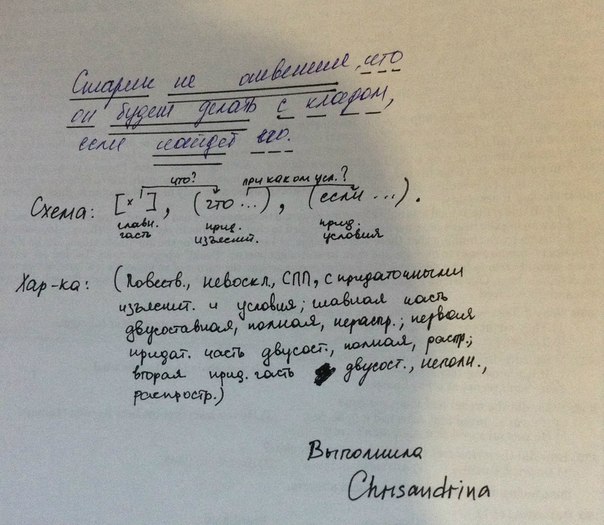 Старик не ответил, что
он будет делать с кладом,
если найдет его.
что? при каком усл.?
Схема: [×], (что ...), (если ...).
главн. прид. прид.
часть изъяснит. условия
Хар-ка: (Повеств., невоскл., СПП, с придаточными
изъяснит. и условия; главная часть
двусоставная, полная, нераспр.; первая
придат. часть двусост., полная, распр.;
вторая прид. часть двусост., неполн.,
распростр.)
Выполнила
Chrisandrina